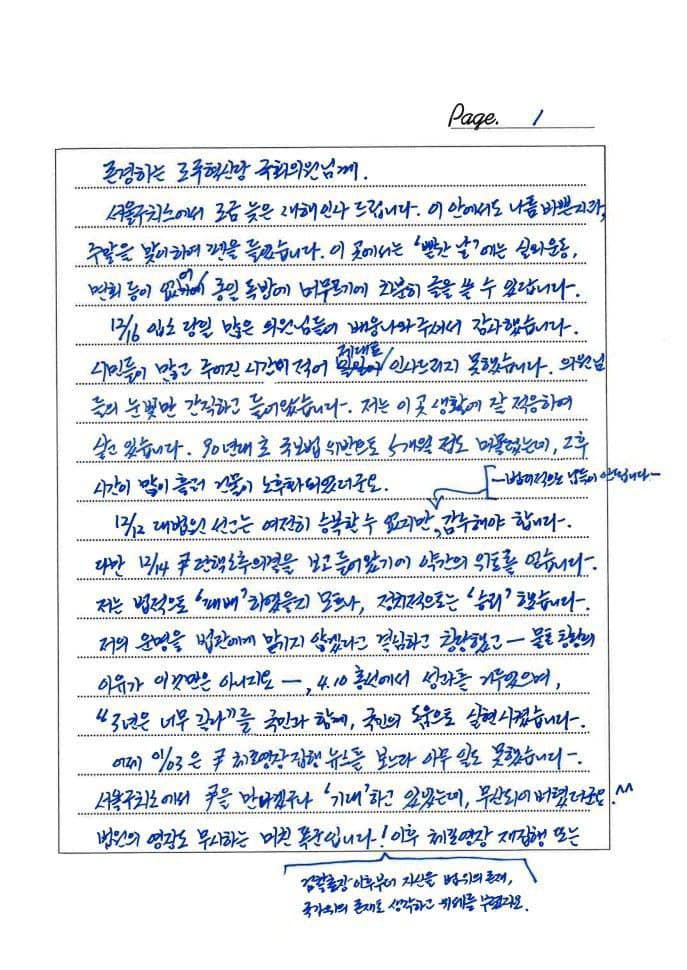 Page. 1
존경하는 조국혁신당 국회의원님께.
서울구치소에서 조금 늦은 새해인사 드립니다. 이 안에서도 나름 바쁜지라,
주말을 맞이하여 펜을 들었습니다. 이 곳에서는 '빨간 날'에는 실외운동,
면회 등이 없어 종일 독방에 머무르기에 차분히 글을 쓸 수 있답니다.
12/16 입소 당일 많은 의원님들이 배웅나와 주셔서 감사했습니다.
시민들이 많고 주어진 시간이 적어 제대로 인사드리지 못했습니다. 의원님
들의 눈빛만 간직하고 들어왔습니다. 저는 이 곳 생활에 잘 적응하여
살고 있습니다. 90년대 초 국보법 위반으로 5개월 정도 머물렀는데, 그후
시간이 많이 흘러 건물이 노후화되었더군요.
- 법리적으로 납득이 안됩니다 -
12/12 대법원 선고는 여전히 승복할 수 없지만, 감수해야 합니다.
다만 12/14 尹 탄핵소추의결을 보고 들어왔기에 약간의 위로를 얻습니다.
저는 법적으로 '패배'하였을지 모르나, 정치적으로는 '승리'했습니다.
저의 운명을 법관에게 맡기지 않겠다고 결심하고 창당했고 — 물론 창당의
이유가 이것만은 아니지요 —, 4.10 총선에서 성과를 거두었으며,
"3년은 너무 길다"를 국민과 함께, 국민의 도움으로 실현시켰습니다.
어제 01/03은 尹 체포영장 집행 뉴스를 보느라 아무 일도 못했습니다.
서울구치소에서 尹을 만나겠구나 '기대'하고 있었는데, 무산되어 버렸더군요.^^
법원의 영장도 무시하는 미친 폭군입니다! 이후 체포영장 재집행 또는
검찰총장 이후부터 자신을 법 위의 존재,
국가 위의 존재로 생각하고 위세를 부렸지요.